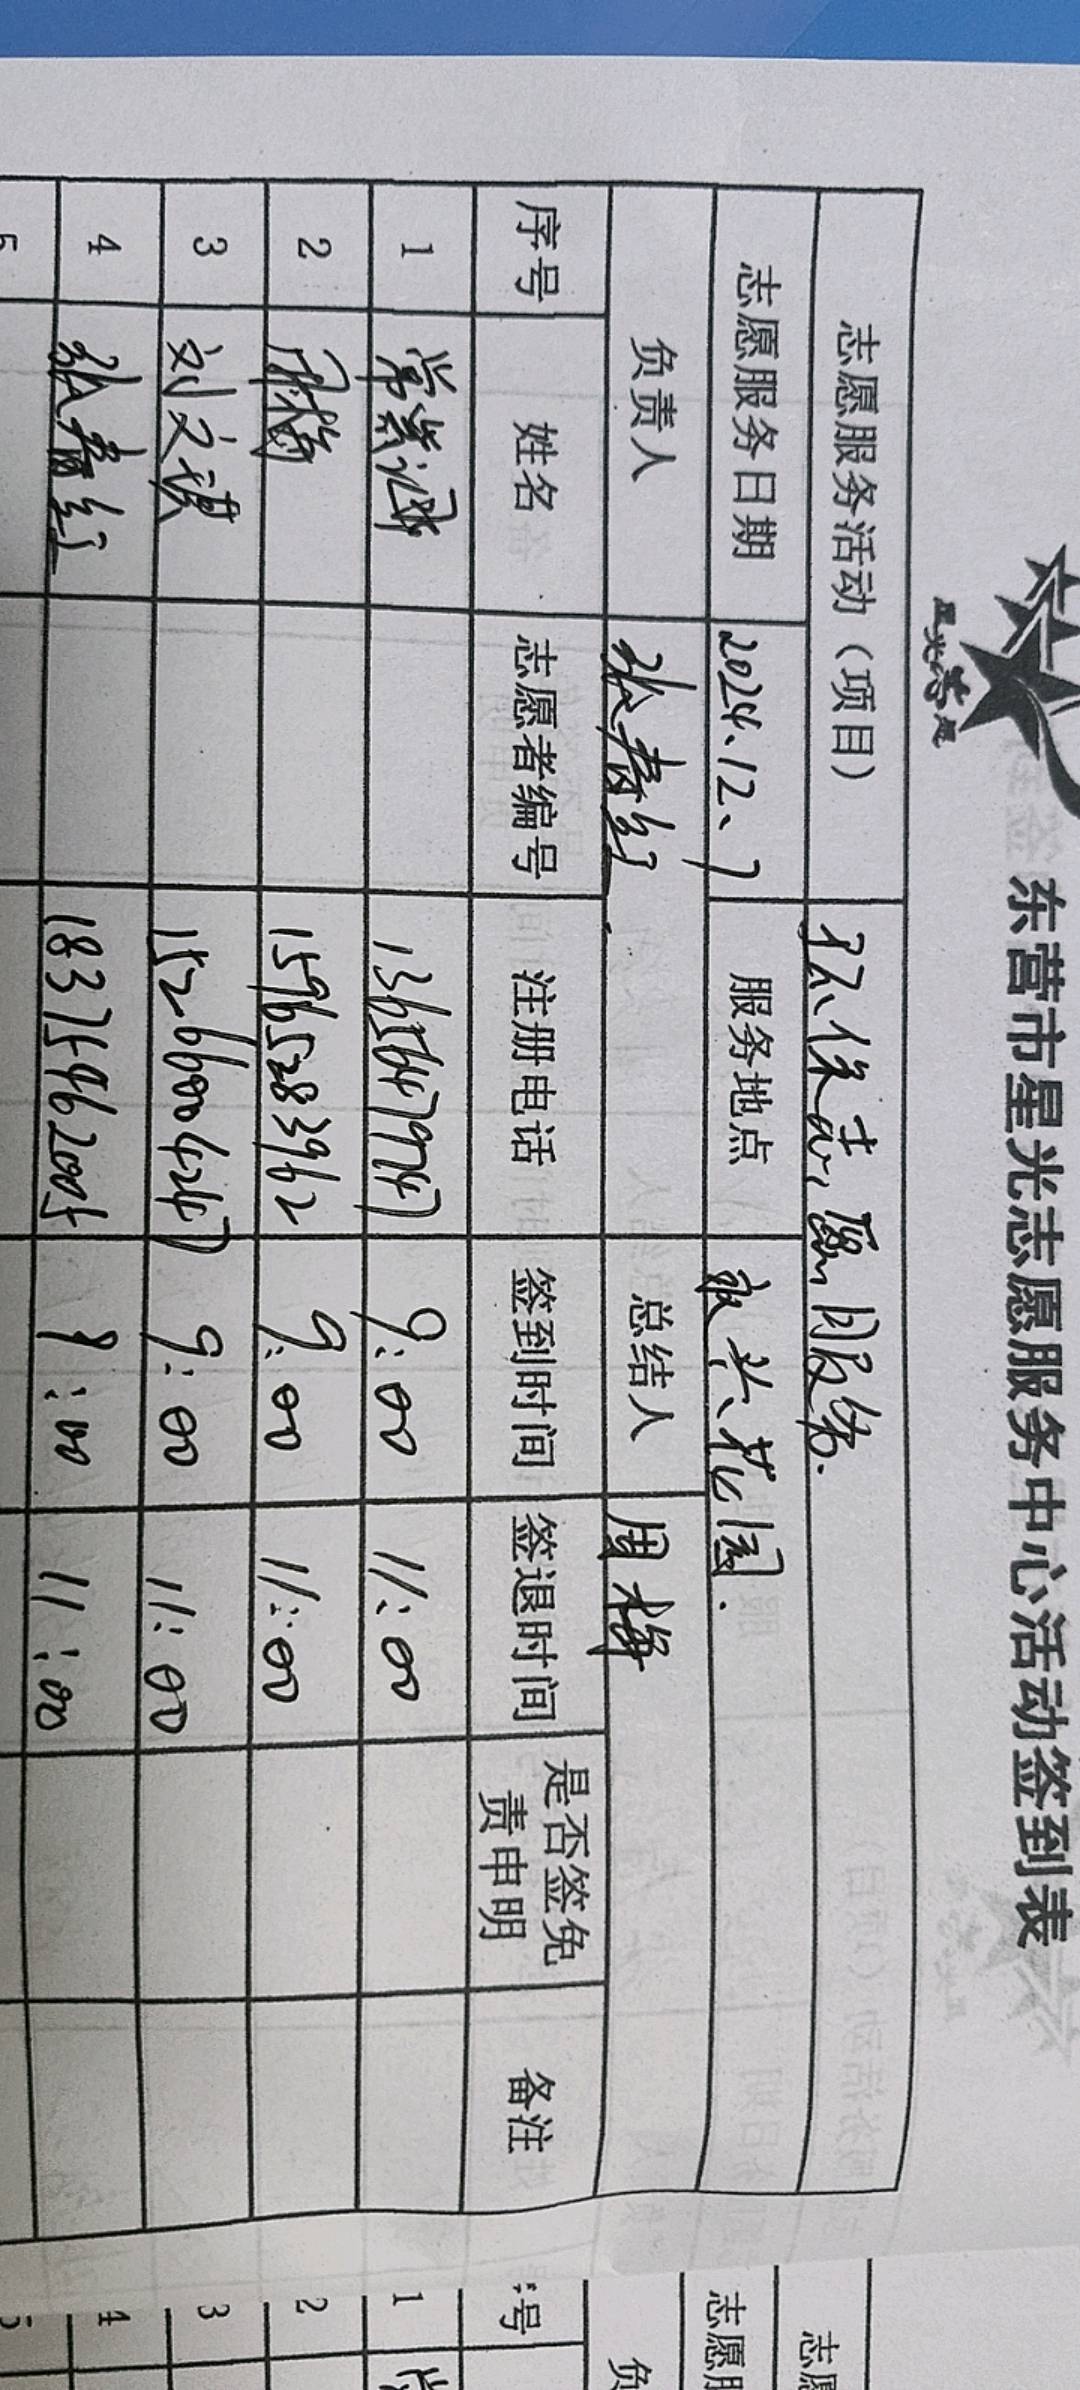 东营市星光志愿服务中心活动签到表
星光学苑
志愿服务活动（项目） 环保志愿服务.
志愿服务日期 2024、12、7 服务地点 敢当花园.
负责人 张春红 总结人 周梅
序号 姓名 志愿者编号 注册电话 签到时间 签退时间 是否签免责申明 备注
1 常紫涵 13656479747 9:00 11:00
2 周梅 15965283962 9:00 11:00
3 刘文祺 15266004247 9:00 11:00
4 张春红 18375462005 9:00 11:00
5
志愿
志愿服
负
号
1
2
3
4